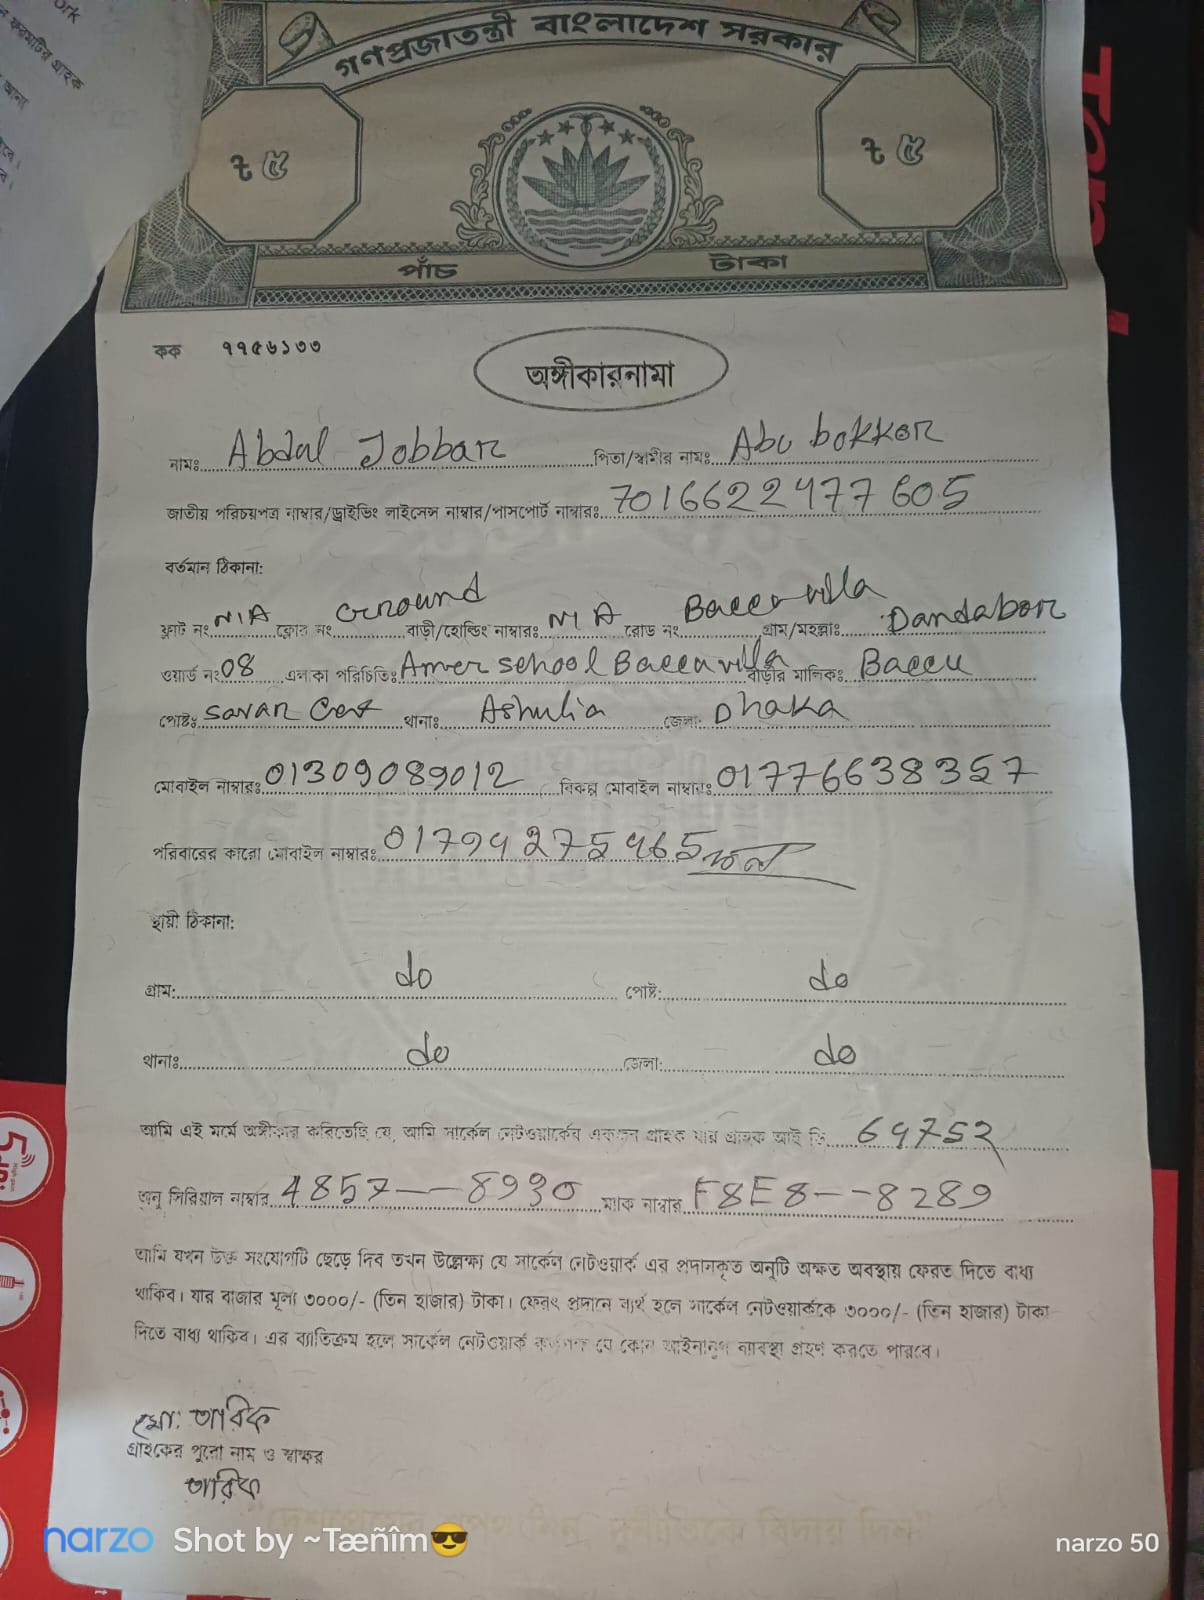 ork
গণপ্রজাতন্ত্রী বাংলাদেশ সরকার
৳ ৫ ৳ ৫
পাঁচ টাকা
কক ৭৭৫৬১৩৩
অঙ্গীকারনামা
নামঃ Abdul Jobbar পিতা/স্বামীর নামঃ Abu bokkor
জাতীয় পরিচয়পত্র নাম্বার/ড্রাইভিং লাইসেন্স নাম্বার/পাসপোর্ট নাম্বারঃ 7016622477605
বর্তমান ঠিকানা:
ফ্লাট নং N/A ফ্লোর নং Ground বাড়ী/হোল্ডিং নাম্বারঃ N/A রোড নং Baccu villa গ্রাম/মহল্লাঃ Dandabor
ওয়ার্ড নংঃ 08 এলাকা পরিচিতিঃ Amer school Baccu villa বাড়ীর মালিকঃ Baccu
পোষ্টঃ Savar Cent থানাঃ Ashulia জেলা: Dhaka
মোবাইল নাম্বারঃ 01309089012 বিকল্প মোবাইল নাম্বারঃ 01776638357
পরিবারের কারো মোবাইল নাম্বারঃ
স্থায়ী ঠিকানা:
গ্রাম: do পোষ্ট: do
থানাঃ do জেলা: do
আমি এই মর্মে অঙ্গীকার করিতেছি যে, আমি সার্কেল নেটওয়ার্কের একজন গ্রাহক যার গ্রাহক আই ডি 64752
অনু সিরিয়াল নাম্বার 4857--8930 ম্যাক নাম্বার F8E8--8289
আমি যখন উক্ত সংযোগটি ছেড়ে দিব তখন উল্লেক্ষ্য যে সার্কেল নেটওয়ার্ক এর প্রদানকৃত অনুটি অক্ষত অবস্থায় ফেরত দিতে বাধ্য
থাকিব। যার বাজার মূল্য ৩০০০/- (তিন হাজার) টাকা। ফেরৎ প্রদানে ব্যর্থ হলে সার্কেল নেটওয়ার্ককে ৩০০০/- (তিন হাজার) টাকা
দিতে বাধ্য থাকিব। এর ব্যাতিক্রম হলে সার্কেল নেটওয়ার্ক কর্তৃপক্ষ যে কোন আইনানুগ ব্যবস্থা গ্রহণ করতে পারবে।
মো: তারিক
গ্রাহকের পুরো নাম ও স্বাক্ষর
তারিক
narzo Shot by ~Tæñîm😎 narzo 50